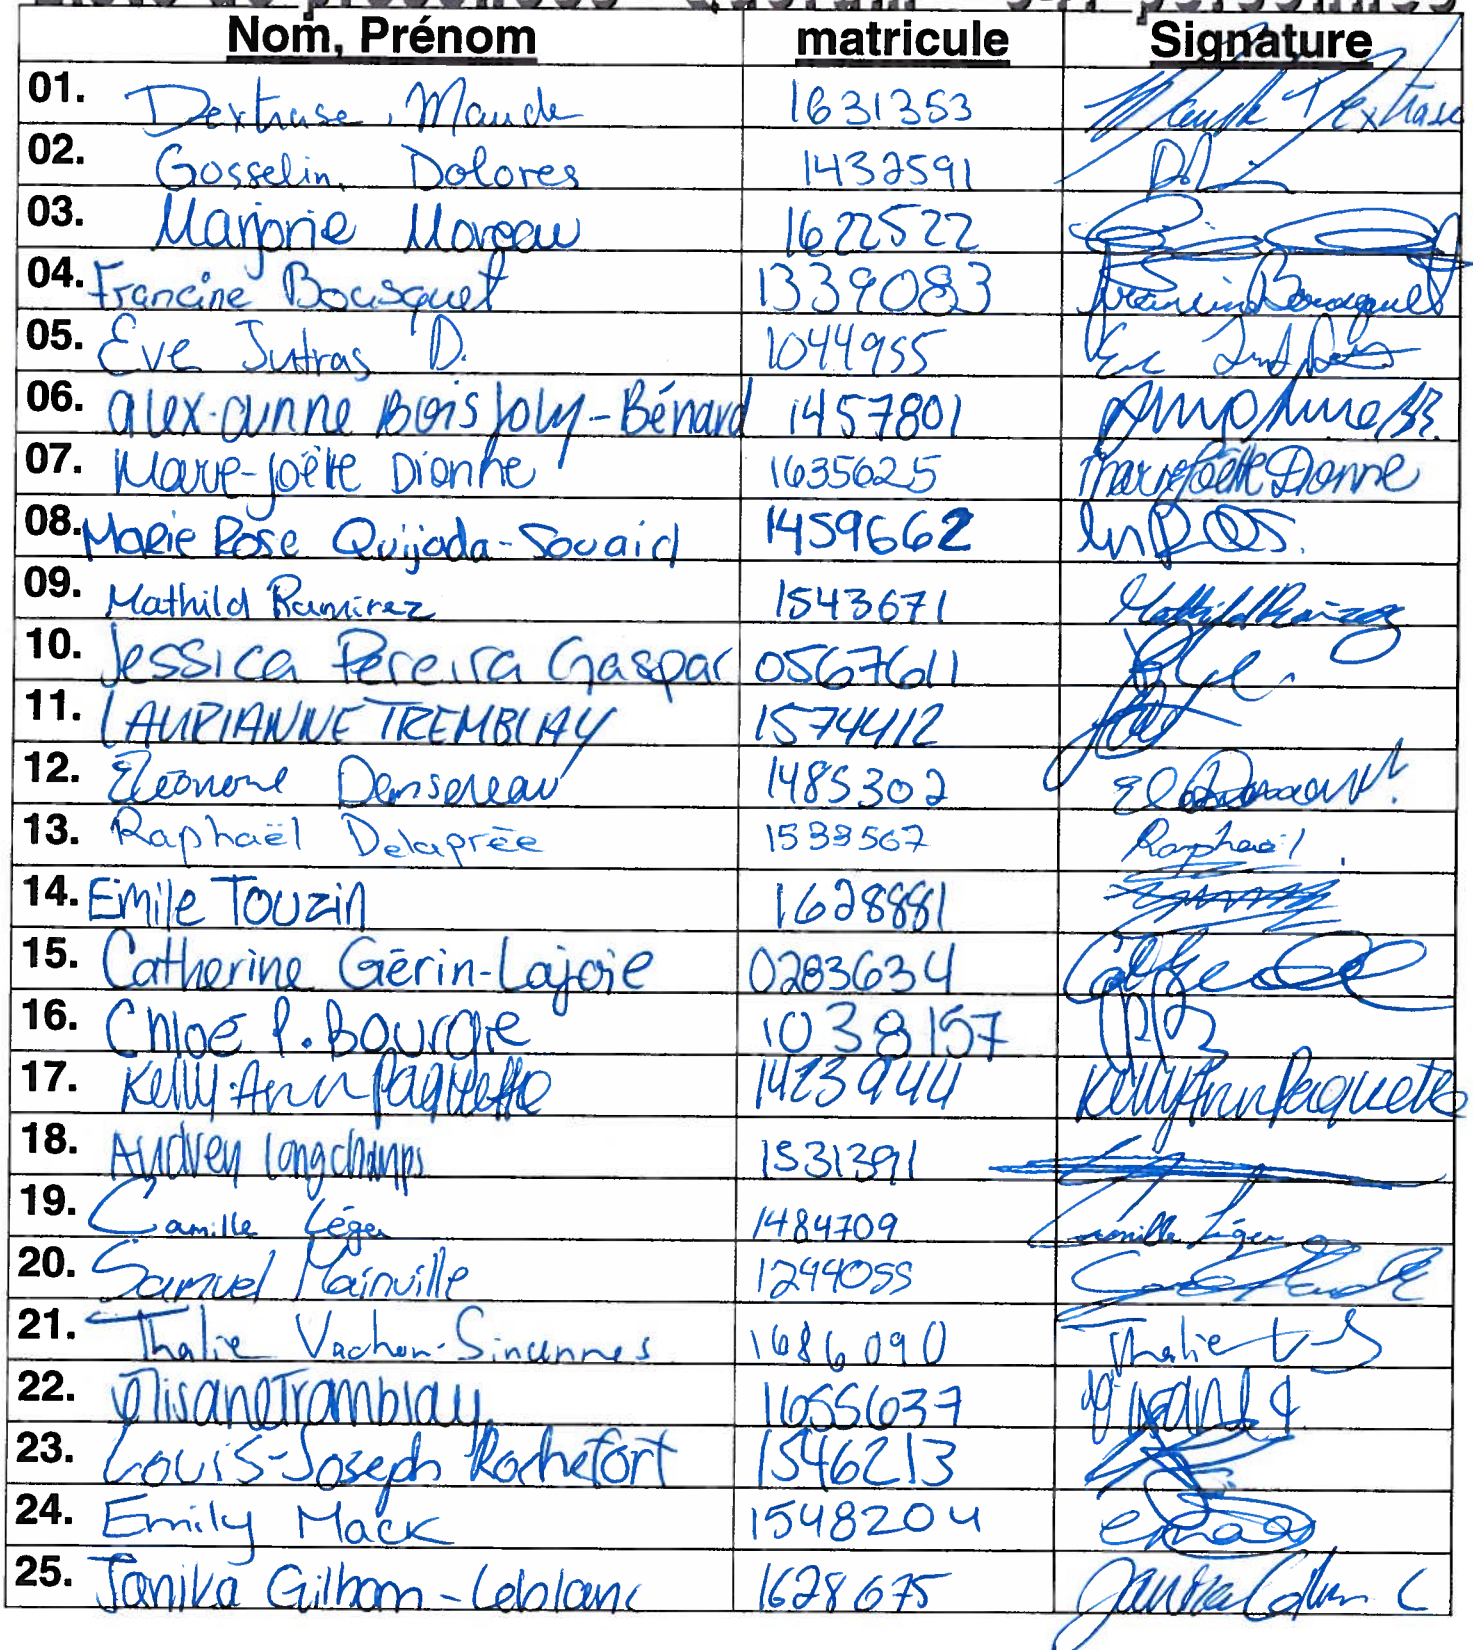 Nom, Prénom matricule Signature
01. Dextrase, Maude 1631353 Maude Dextrase
02. Gosselin, Dolores 1432591
03. Marjorie Moreau 1622522
04. Francine Bousquet 1339083 Francine Bousquet
05. Eve Jutras D. 1044955
06. Alex-Anne Boisjoly-Bénard 1457801
07. Marie-Joëlle Dionne 1635625 Marie-Joëlle Dionne
08. Marie Rose Quijada-Souaid 1459662
09. Mathild Ramirez 1543671 Mathild Ramirez
10. Jessica Pereira Gaspar 0567611
11. LAURIANNE TREMBLAY 1574412
12. Éléonore Dansereau 1485302
13. Raphaël Delaprée 1539567 Raphaël
14. Emile Touzin 1628881
15. Catherine Gérin-Lajoie 0283634
16. Chloé P. Bourgie 1038157
17. Kelly-Ann Paquette 1423944 Kelly-Ann Paquette
18. Audrey Longchamps 1531391
19. Camille Léger 1484709 Camille Léger
20. Samuel Mainville 1244055
21. Thalie Vachon-Sincennes 1686090 Thalie V-S
22. Tremblay 1655637
23. Louis-Joseph Rochefort 1546213
24. Emily Mack 1548204
25. Janika Gilham-Leblanc 1628675